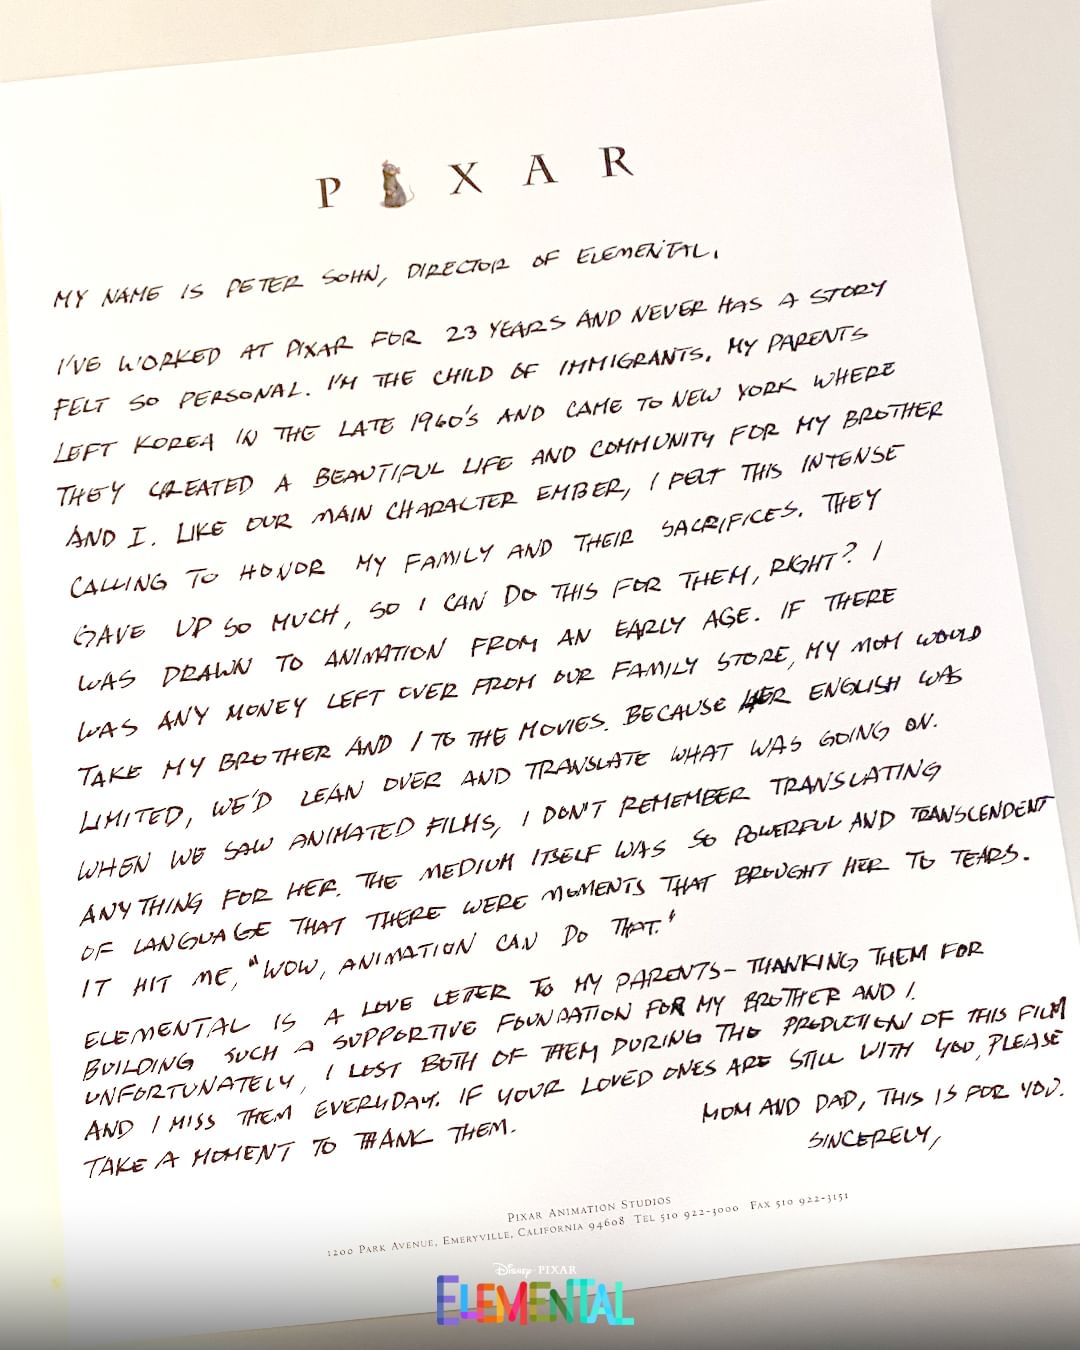 P I X A R
MY NAME IS PETER SOHN, DIRECTOR OF ELEMENTAL.
I'VE WORKED AT PIXAR FOR 23 YEARS AND NEVER HAS A STORY
FELT SO PERSONAL. I'M THE CHILD OF IMMIGRANTS. MY PARENTS
LEFT KOREA IN THE LATE 1960'S AND CAME TO NEW YORK WHERE
THEY CREATED A BEAUTIFUL LIFE AND COMMUNITY FOR MY BROTHER
AND I. LIKE OUR MAIN CHARACTER EMBER, I FELT THIS INTENSE
CALLING TO HONOR MY FAMILY AND THEIR SACRIFICES. THEY
GAVE UP SO MUCH, SO I CAN DO THIS FOR THEM, RIGHT? I
WAS DRAWN TO ANIMATION FROM AN EARLY AGE. IF THERE
WAS ANY MONEY LEFT OVER FROM OUR FAMILY STORE, MY MOM WOULD
TAKE MY BROTHER AND I TO THE MOVIES. BECAUSE HER ENGLISH WAS
LIMITED, WE'D LEAN OVER AND TRANSLATE WHAT WAS GOING ON.
WHEN WE SAW ANIMATED FILMS, I DON'T REMEMBER TRANSLATING
ANYTHING FOR HER. THE MEDIUM ITSELF WAS SO POWERFUL AND TRANSCENDENT
OF LANGUAGE THAT THERE WERE MOMENTS THAT BROUGHT HER TO TEARS.
IT HIT ME, "WOW, ANIMATION CAN DO THAT."
ELEMENTAL IS A LOVE LETTER TO MY PARENTS - THANKING THEM FOR
BUILDING SUCH A SUPPORTIVE FOUNDATION FOR MY BROTHER AND I.
UNFORTUNATELY, I LOST BOTH OF THEM DURING THE PRODUCTION OF THIS FILM
AND I MISS THEM EVERYDAY. IF YOUR LOVED ONES ARE STILL WITH YOU, PLEASE
TAKE A MOMENT TO THANK THEM.
MOM AND DAD, THIS IS FOR YOU.
SINCERELY,
PIXAR ANIMATION STUDIOS
1200 PARK AVENUE, EMERYVILLE, CALIFORNIA 94608 TEL 510 922-3000 FAX 510 922-3151
Disney · PIXAR
ELEMENTAL